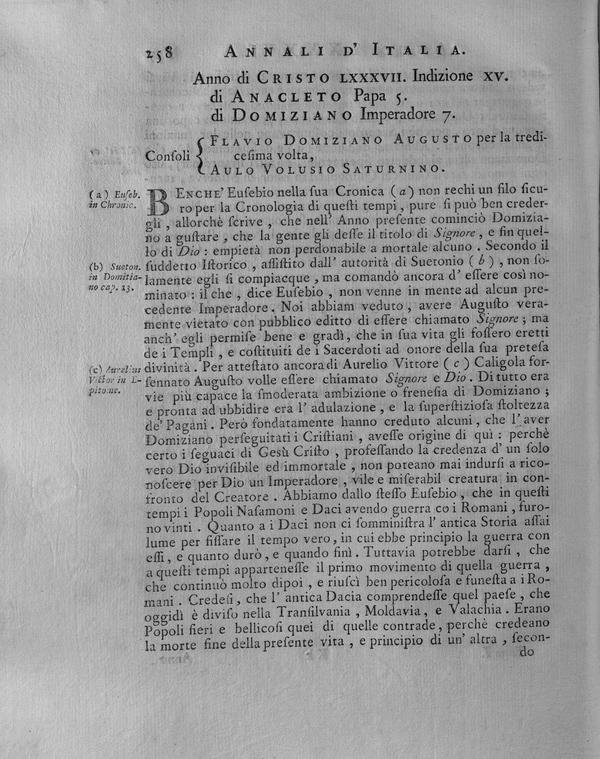 258 ANNALI D' ITALIA.
Anno di CRISTO LXXXVII. Indizione XV.
di ANACLETO Papa 5.
di DOMIZIANO Imperadore 7.
Consoli { FLAVIO DOMIZIANO AUGUSTO per la tredi-
ceſima volta,
AULO VOLUSIO SATURNINO.
(a) Euſeb.
in Chronic.
BENCHE' Euſebio nella ſua Cronica (a) non rechi un filo ſicu-
ro per la Cronologia di queſti tempi, pure ſi può ben creder-
gli, allorchè ſcrive, che nell' Anno preſente cominciò Domizia-
no a guſtare, che la gente gli deſſe il titolo di Signore, e fin quel-
lo di Dio: empietà non perdonabile a mortale alcuno. Secondo il
(b) Sueton.
in Domitia-
no cap. 13.
ſuddetto Iſtorico, aſſiſtito dall' autorità di Suetonio (b), non ſo-
lamente egli ſi compiacque, ma comandò ancora d' eſſere così no-
minato: il che, dice Euſebio, non venne in mente ad alcun pre-
cedente Imperadore. Noi abbiam veduto, avere Auguſto vera-
mente vietato con pubblico editto di eſſere chiamato Signore; ma
anch' egli permiſe bene e gradì, che in ſua vita gli foſſero eretti
de i Templi, e coſtituiti de i Sacerdoti ad onore della ſua preteſa
(c) Aurelius
Victor in E-
pitome.
divinità. Per atteſtato ancora di Aurelio Vittore (c) Caligola for-
ſennato Auguſto volle eſſere chiamato Signore e Dio. Di tutto era
vie più capace la ſmoderata ambizione o freneſia di Domiziano;
e pronta ad ubbidire era l' adulazione, e la ſuperſtizioſa ſtoltezza
de' Pagani. Però fondatamente hanno creduto alcuni, che l' aver
Domiziano perſeguitati i Criſtiani, aveſſe origine di quì: perchè
certo i ſeguaci di Gesù Criſto, profeſſando la credenza d' un ſolo
vero Dio inviſibile ed immortale, non poteano mai indurſi a rico-
noſcere per Dio un Imperadore, vile e miſerabil creatura in con-
fronto del Creatore. Abbiamo dallo ſteſſo Euſebio, che in queſti
tempi i Popoli Naſamoni e Daci avendo guerra co i Romani, furo-
no vinti. Quanto a i Daci non ci ſomminiſtra l' antica Storia aſſai
lume per fiſſare il tempo vero, in cui ebbe principio la guerra con
eſſi, e quanto durò, e quando finì. Tuttavia potrebbe darſi, che
a queſti tempi apparteneſſe il primo movimento di quella guerra,
che continuò molto dipoi, e riuſcì ben pericoloſa e funeſta a i Ro-
mani. Credeſi, che l' antica Dacia comprendeſſe quel paeſe, che
oggidì è diviſo nella Tranſilvania, Moldavia, e Valachia. Erano
Popoli fieri e bellicoſi quei di quelle contrade, perchè credeano
la morte fine della preſente vita, e principio di un' altra, ſecon-
do